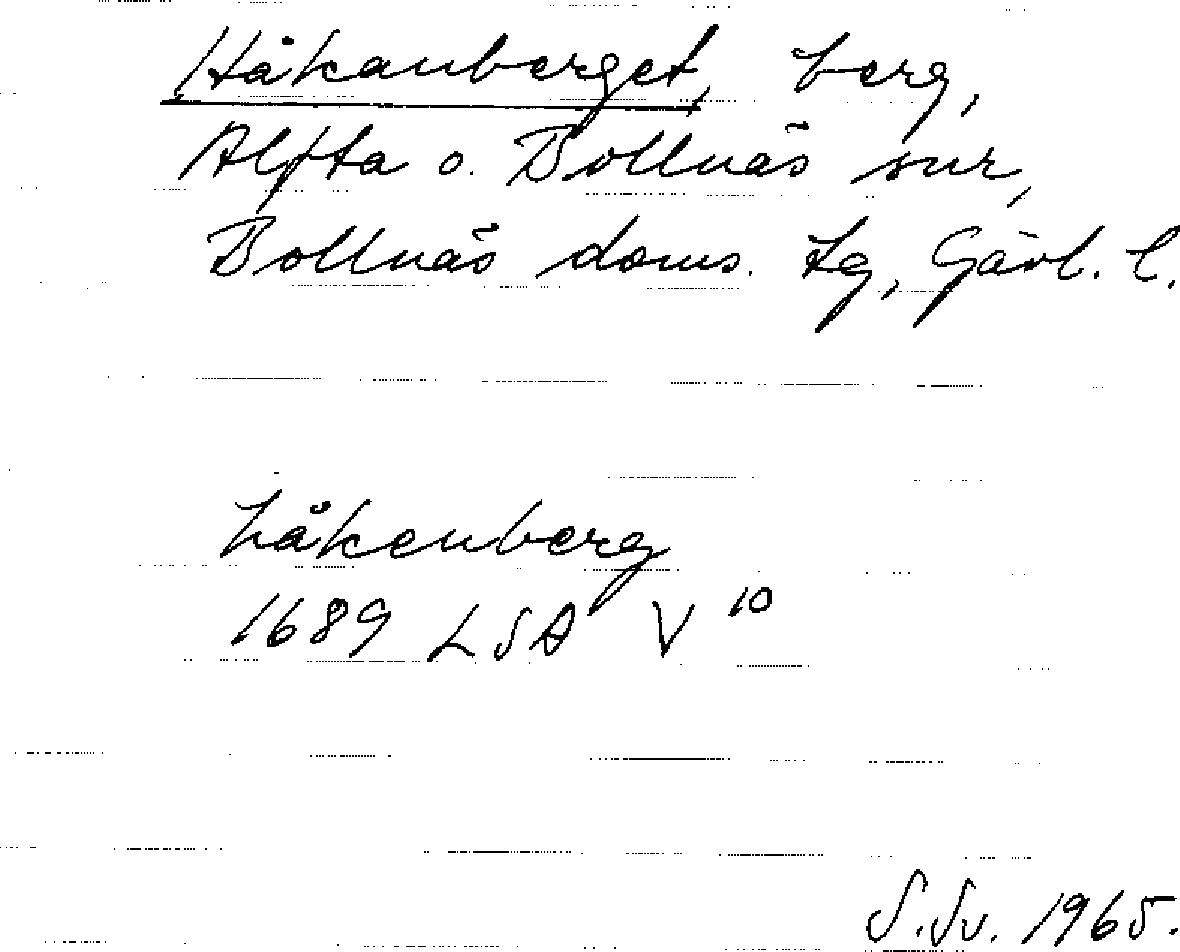 Håkanberget, berg,
Alfta o. Bollnäs snr,
Bollnäs doms. tg, Gävl. l.
håkenberg
1689 LSA V 10
S.Sv. 1965.